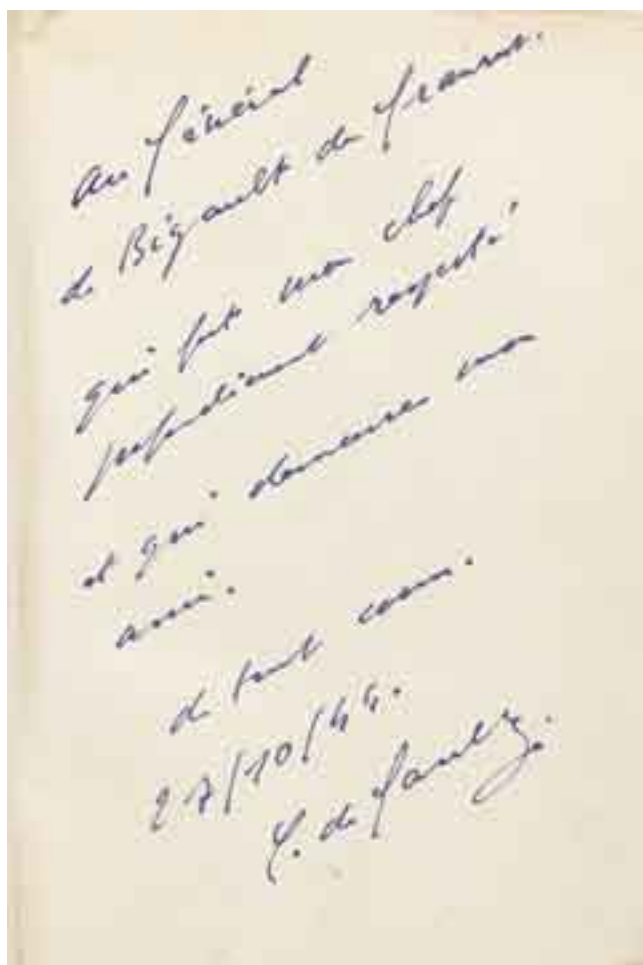 Au Général
de Bigault de Granrut.
qui fut mon chef
profondément respecté
et qui demeure mon
ami.
de tout coeur.
27/10/44.
C. de Gaulle.